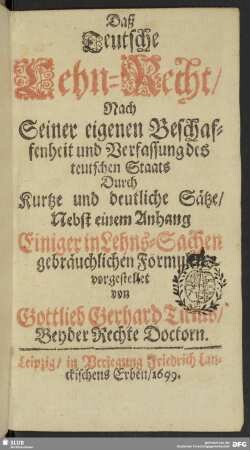 Daß
Deutsche
Lehn-Recht/
Nach
Seiner eigenen Beschaf-
fenheit und Verfassung des
teutschen Staats
Durch
Kurtze und deutliche Sätze/
Nebst einem Anhang
Einiger in Lehns-Sachen
gebräuchlichen Formulen
vorgestellet
von
Gottlieb Gerhard
Beyder Rechte Doctorn.
Leipzig/ in Verlegung Friedrich Lan-
ckischens Erben/1699.
SLUB
DFG